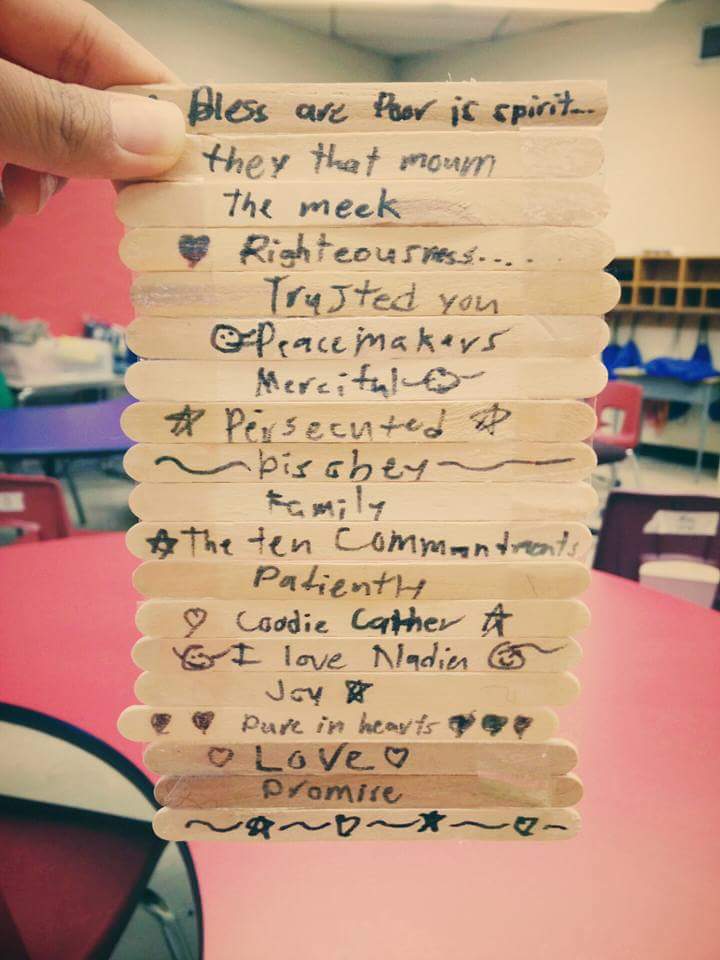 Bless are Poor is spirit...
they that mourn
the meek
Righteousness.....
Trusted you
Peacemakers
Merciful
Persecuted
Disobey
Family
The ten Commandments
Patiently
Coodie Cather
I love Nadien
Joy
Pure in hearts
Love
Promise